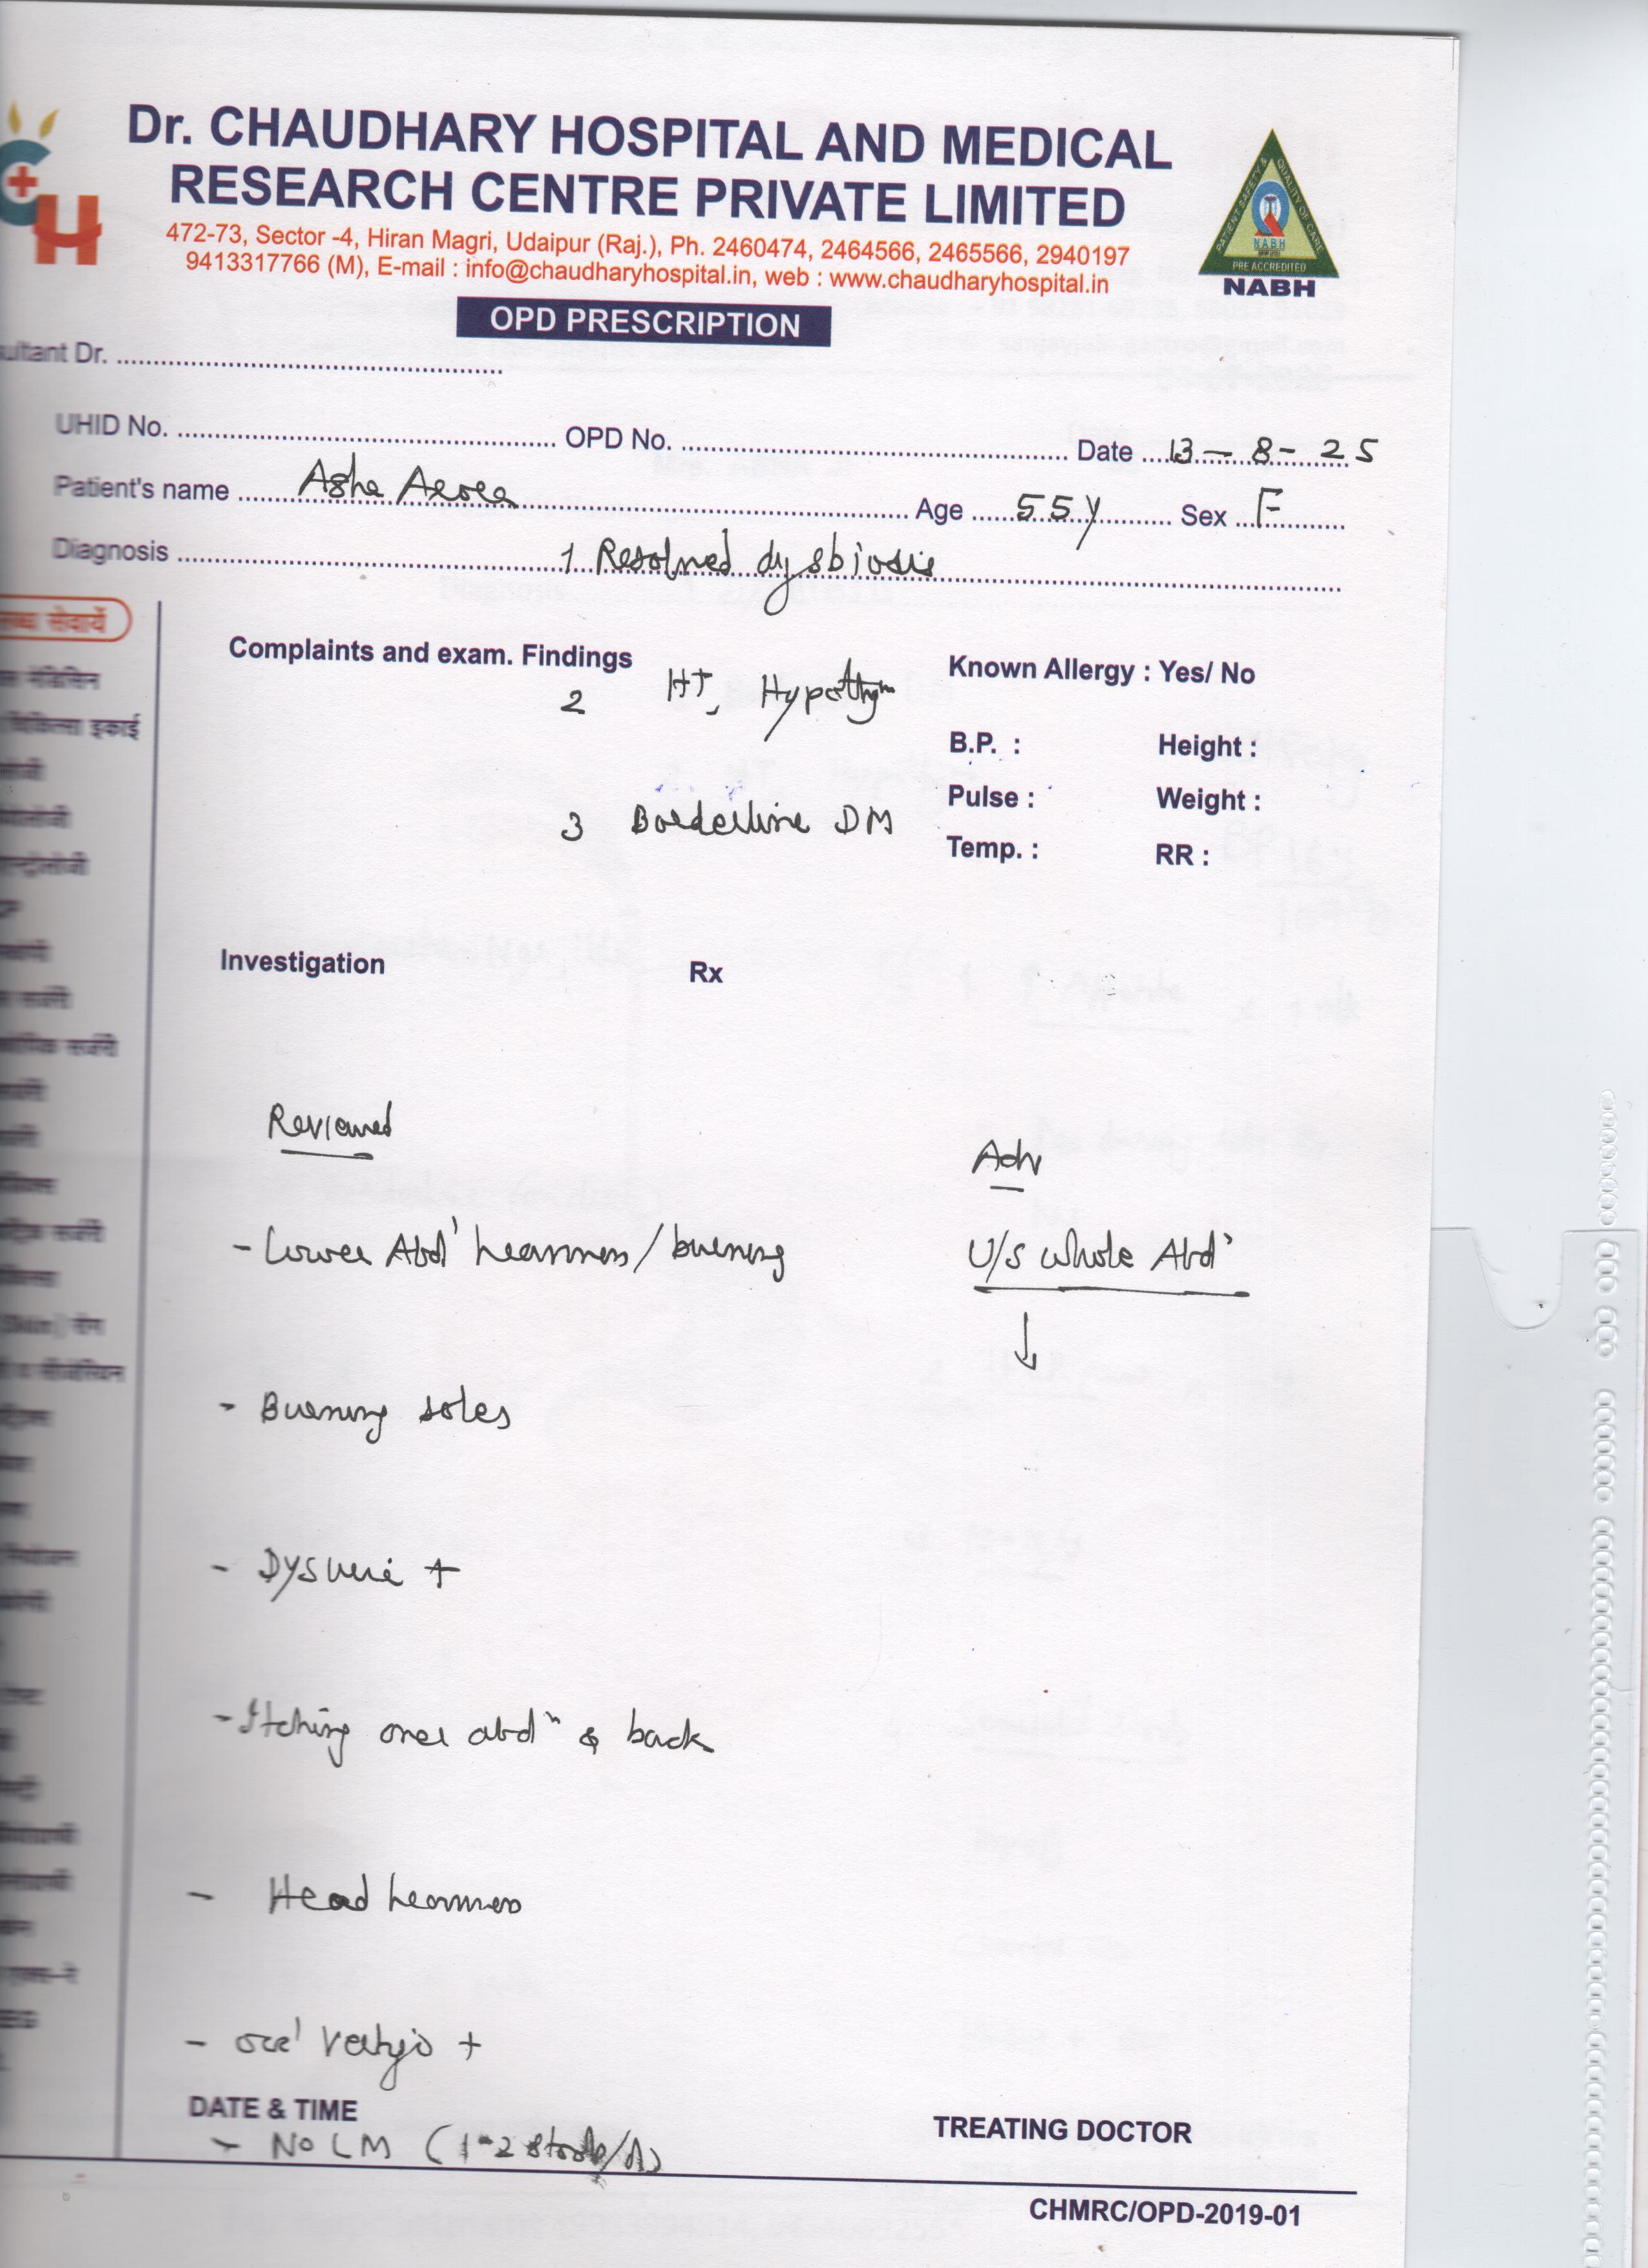 Dr. CHAUDHARY HOSPITAL AND MEDICAL
RESEARCH CENTRE PRIVATE LIMITED
472-73, Sector -4, Hiran Magri, Udaipur (Raj.), Ph. 2460474, 2464566, 2465566, 2940197
9413317766 (M), E-mail : info@chaudharyhospital.in, web : www.chaudharyhospital.in
PATIENT SAFETY & QUALITY OF CARE
NABH
PRE ACCREDITED
NABH
OPD PRESCRIPTION
Dr.
UHID No. OPD No. Date 13-8-25
Patient's name Asha Age 55y Sex F
Diagnosis 1 Resolved dysbiosis
सेवायें
Complaints and exam. Findings Known Allergy : Yes/ No
2 HT, Hypothy
B.P. : Height :
Pulse : Weight :
3 Borderline DM
Temp. : RR :
Investigation Rx
Reviewed
Adv
- Lower Abd' heaviness/burning U/S whole Abd'
↓
- Burning soles
- Dysuri +
- Itching over abdn & back
- Head heaviness
- occ' vertigo +
DATE & TIME TREATING DOCTOR
- No LM (1-2 stools/d)
CHMRC/OPD-2019-01